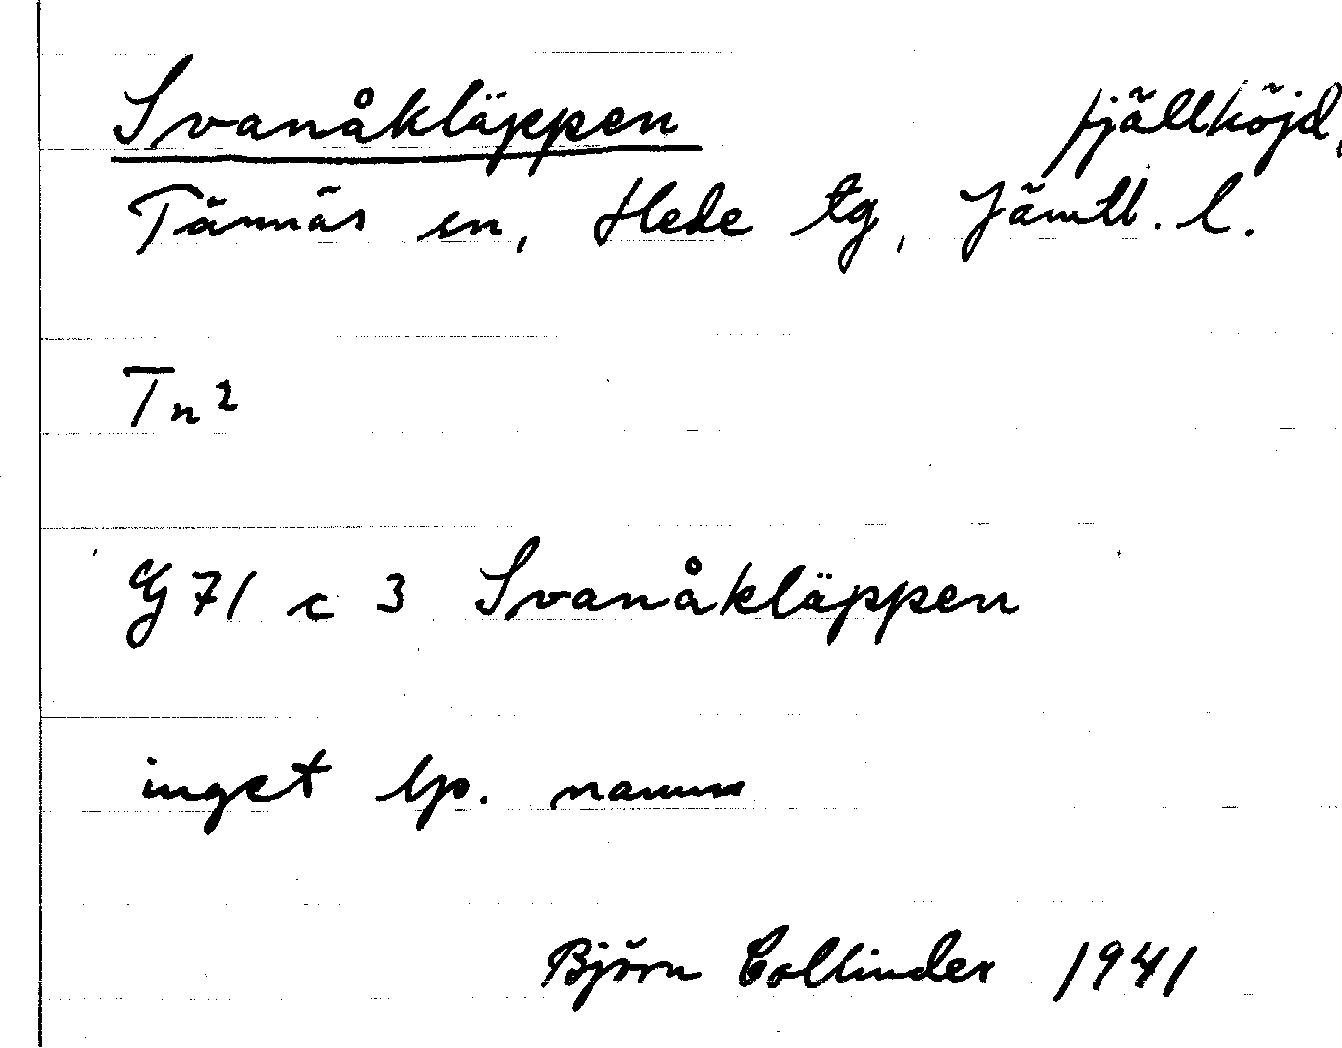 Svanåkläppen fjällhöjd,
Tännäs sn, Hede tg, Jämtl. l.
Tn2
G 71 c 3 Svanåkläppen
inget lp. namn
Björn Collinder 1941